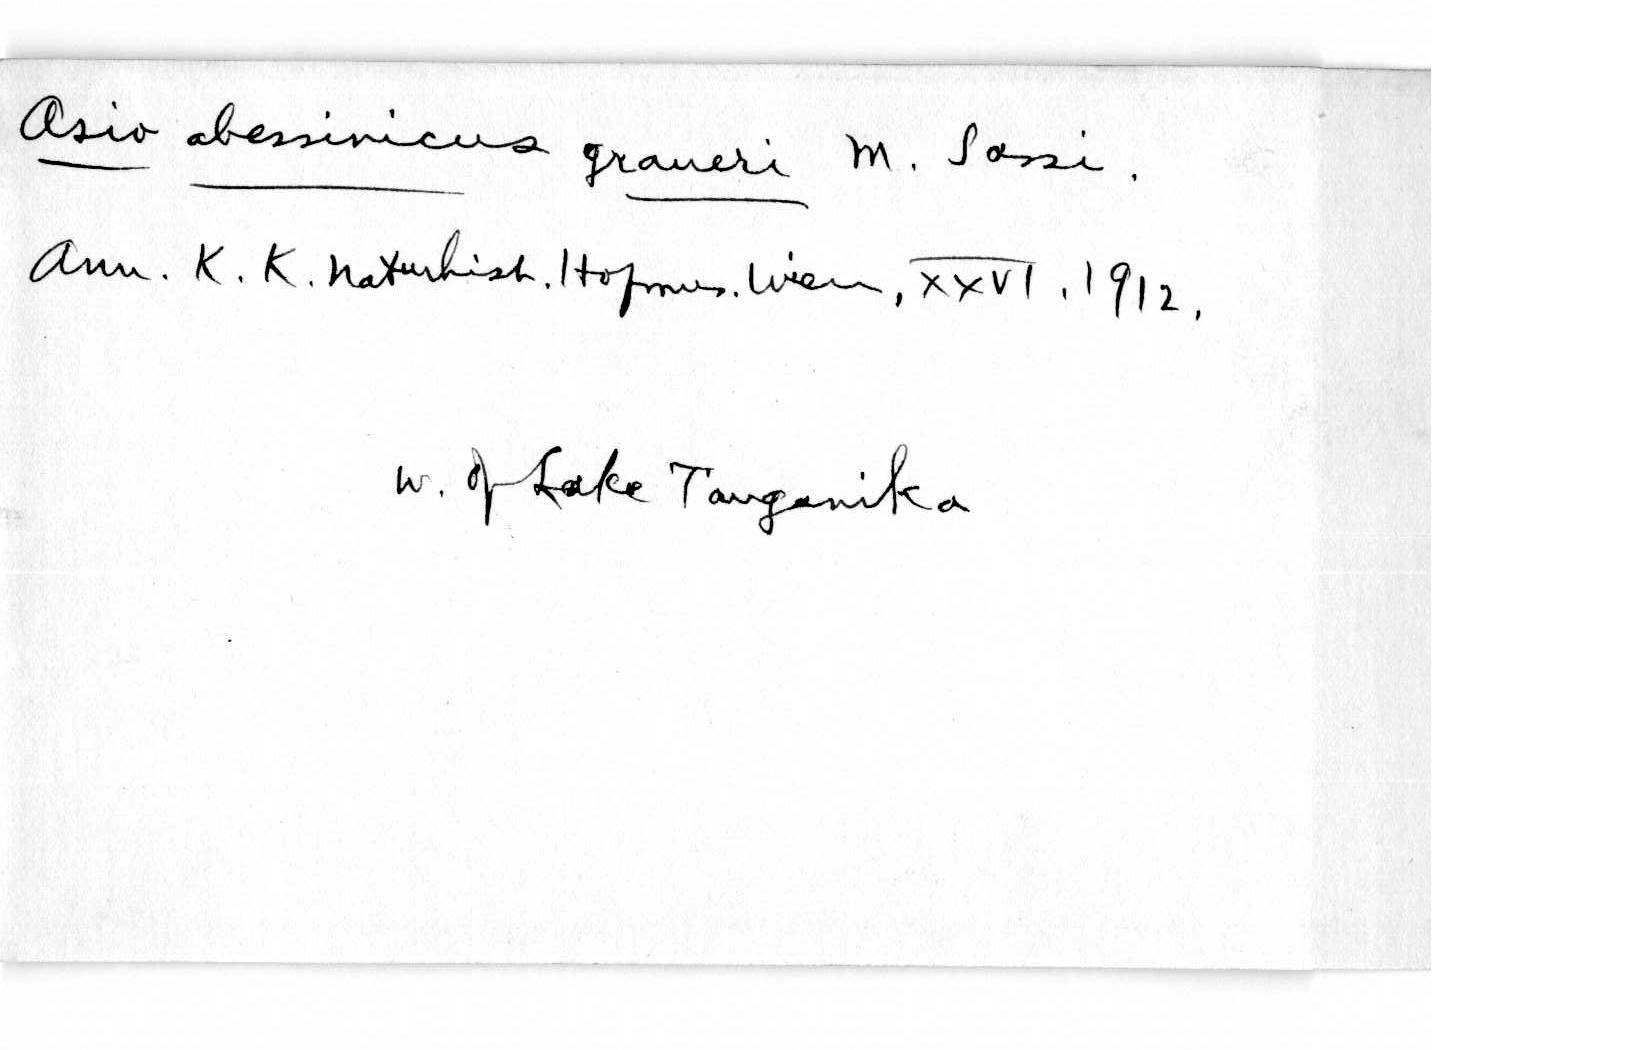 Asio abessinicus graueri M. Sassi.
Ann. K. K. Naturhist. Hofmus. Wien, XXVI, 1912.
W. of Lake Tanganika